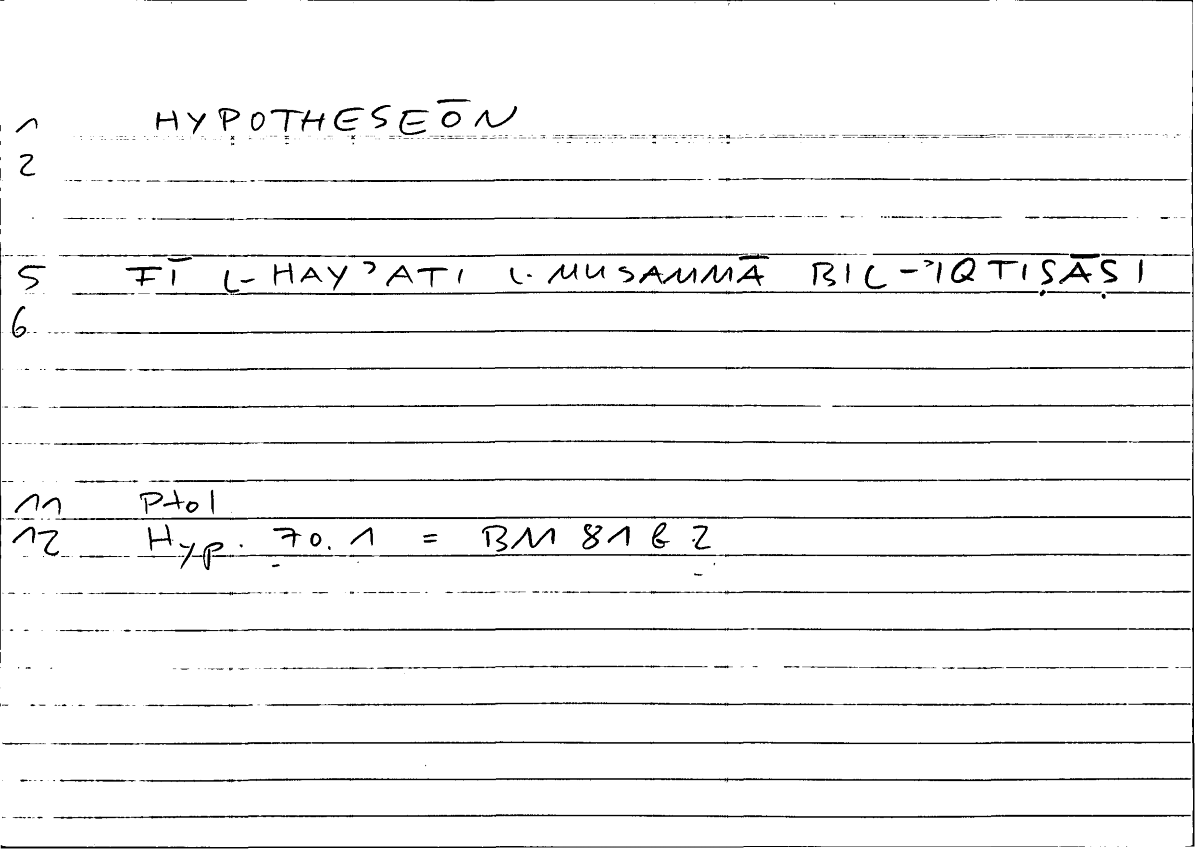 1 HYPOTHESEŌN
2
5 FĪ L-HAYʾATI L-MUSAMMĀ BIL-ʾIQTIṢĀṢI
6
11 Ptol
12 Hyp. 70.1 = BM 81 6 2